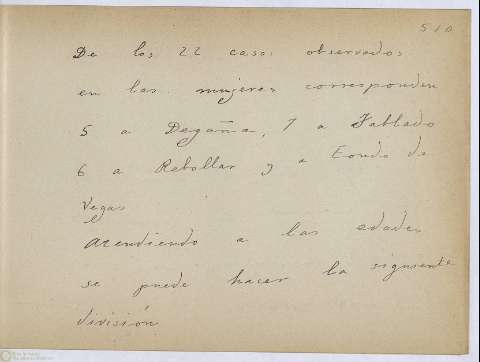 510
De los 22 casos observados
en las mujeres corresponden
5 a Degaña, 7 a Tablado
6 a Rebollar y a Fondo de
Vegas
Atendiendo a las edades
se puede hacer la siguiente
división